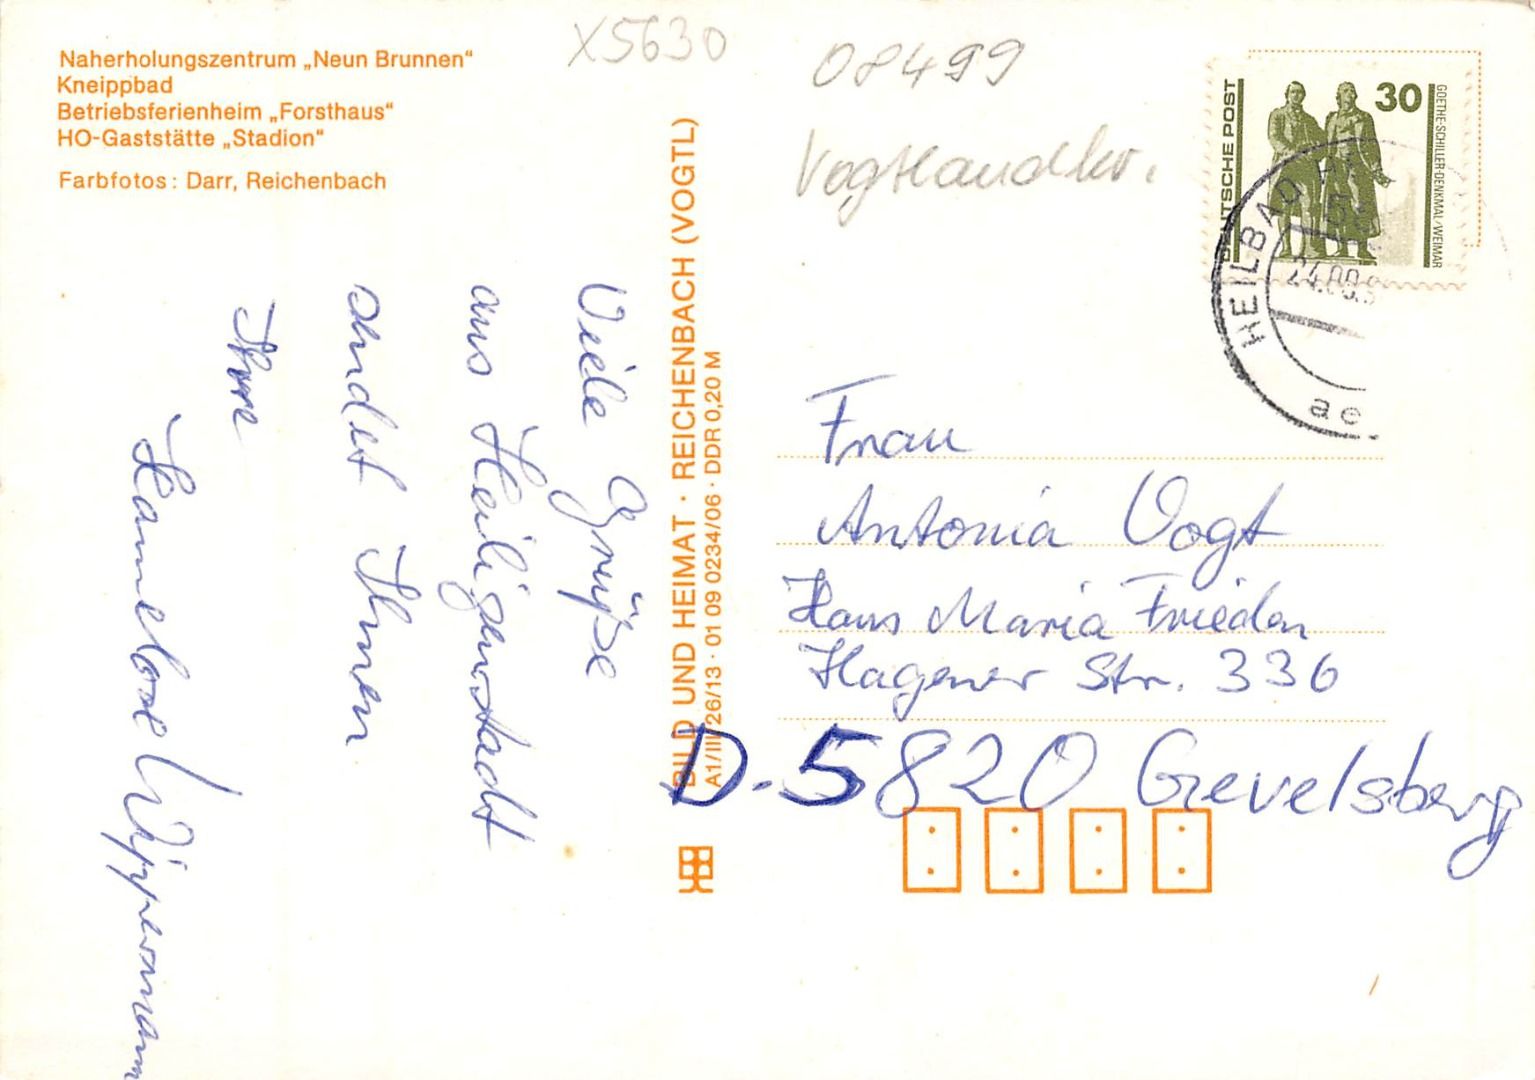 Naherholungszentrum „Neun Brunnen“
Kneippbad
Betriebsferienheim „Forsthaus“
HO-Gaststätte „Stadion“
Farbfotos: Darr, Reichenbach
X5630
08499
Vogtlandkr.
DEUTSCHE POST
30
GOETHE-SCHILLER-DENKMAL/WEIMAR
HEILBAD
24.08.9
ae
BILD UND HEIMAT · REICHENBACH (VOGTL)
A1/III/26/13 · 01 09 0234/06 · DDR 0,20 M
Viele Grüße
aus Heiligenstadt
sendet Ihnen
Ihre
Hannelore Wippermann
Frau
Antonia Vogt
Haus Maria Frieden
Hagener Str. 336
D-5820 Gevelsberg